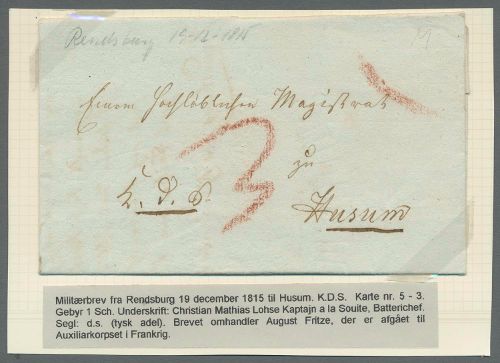 Rendsburg 19-12-1815
Einem Hochlöblichen Magistrat
zu
K. D. S.
3
Husum
Militærbrev fra Rendsburg 19 december 1815 til Husum. K.D.S. Karte nr. 5 - 3.
Gebyr 1 Sch. Underskrift: Christian Mathias Lohse Kaptajn a la Souite, Batterichef.
Segl: d.s. (tysk adel). Brevet omhandler August Fritze, der er afgået til
Auxiliarkorpset i Frankrig.